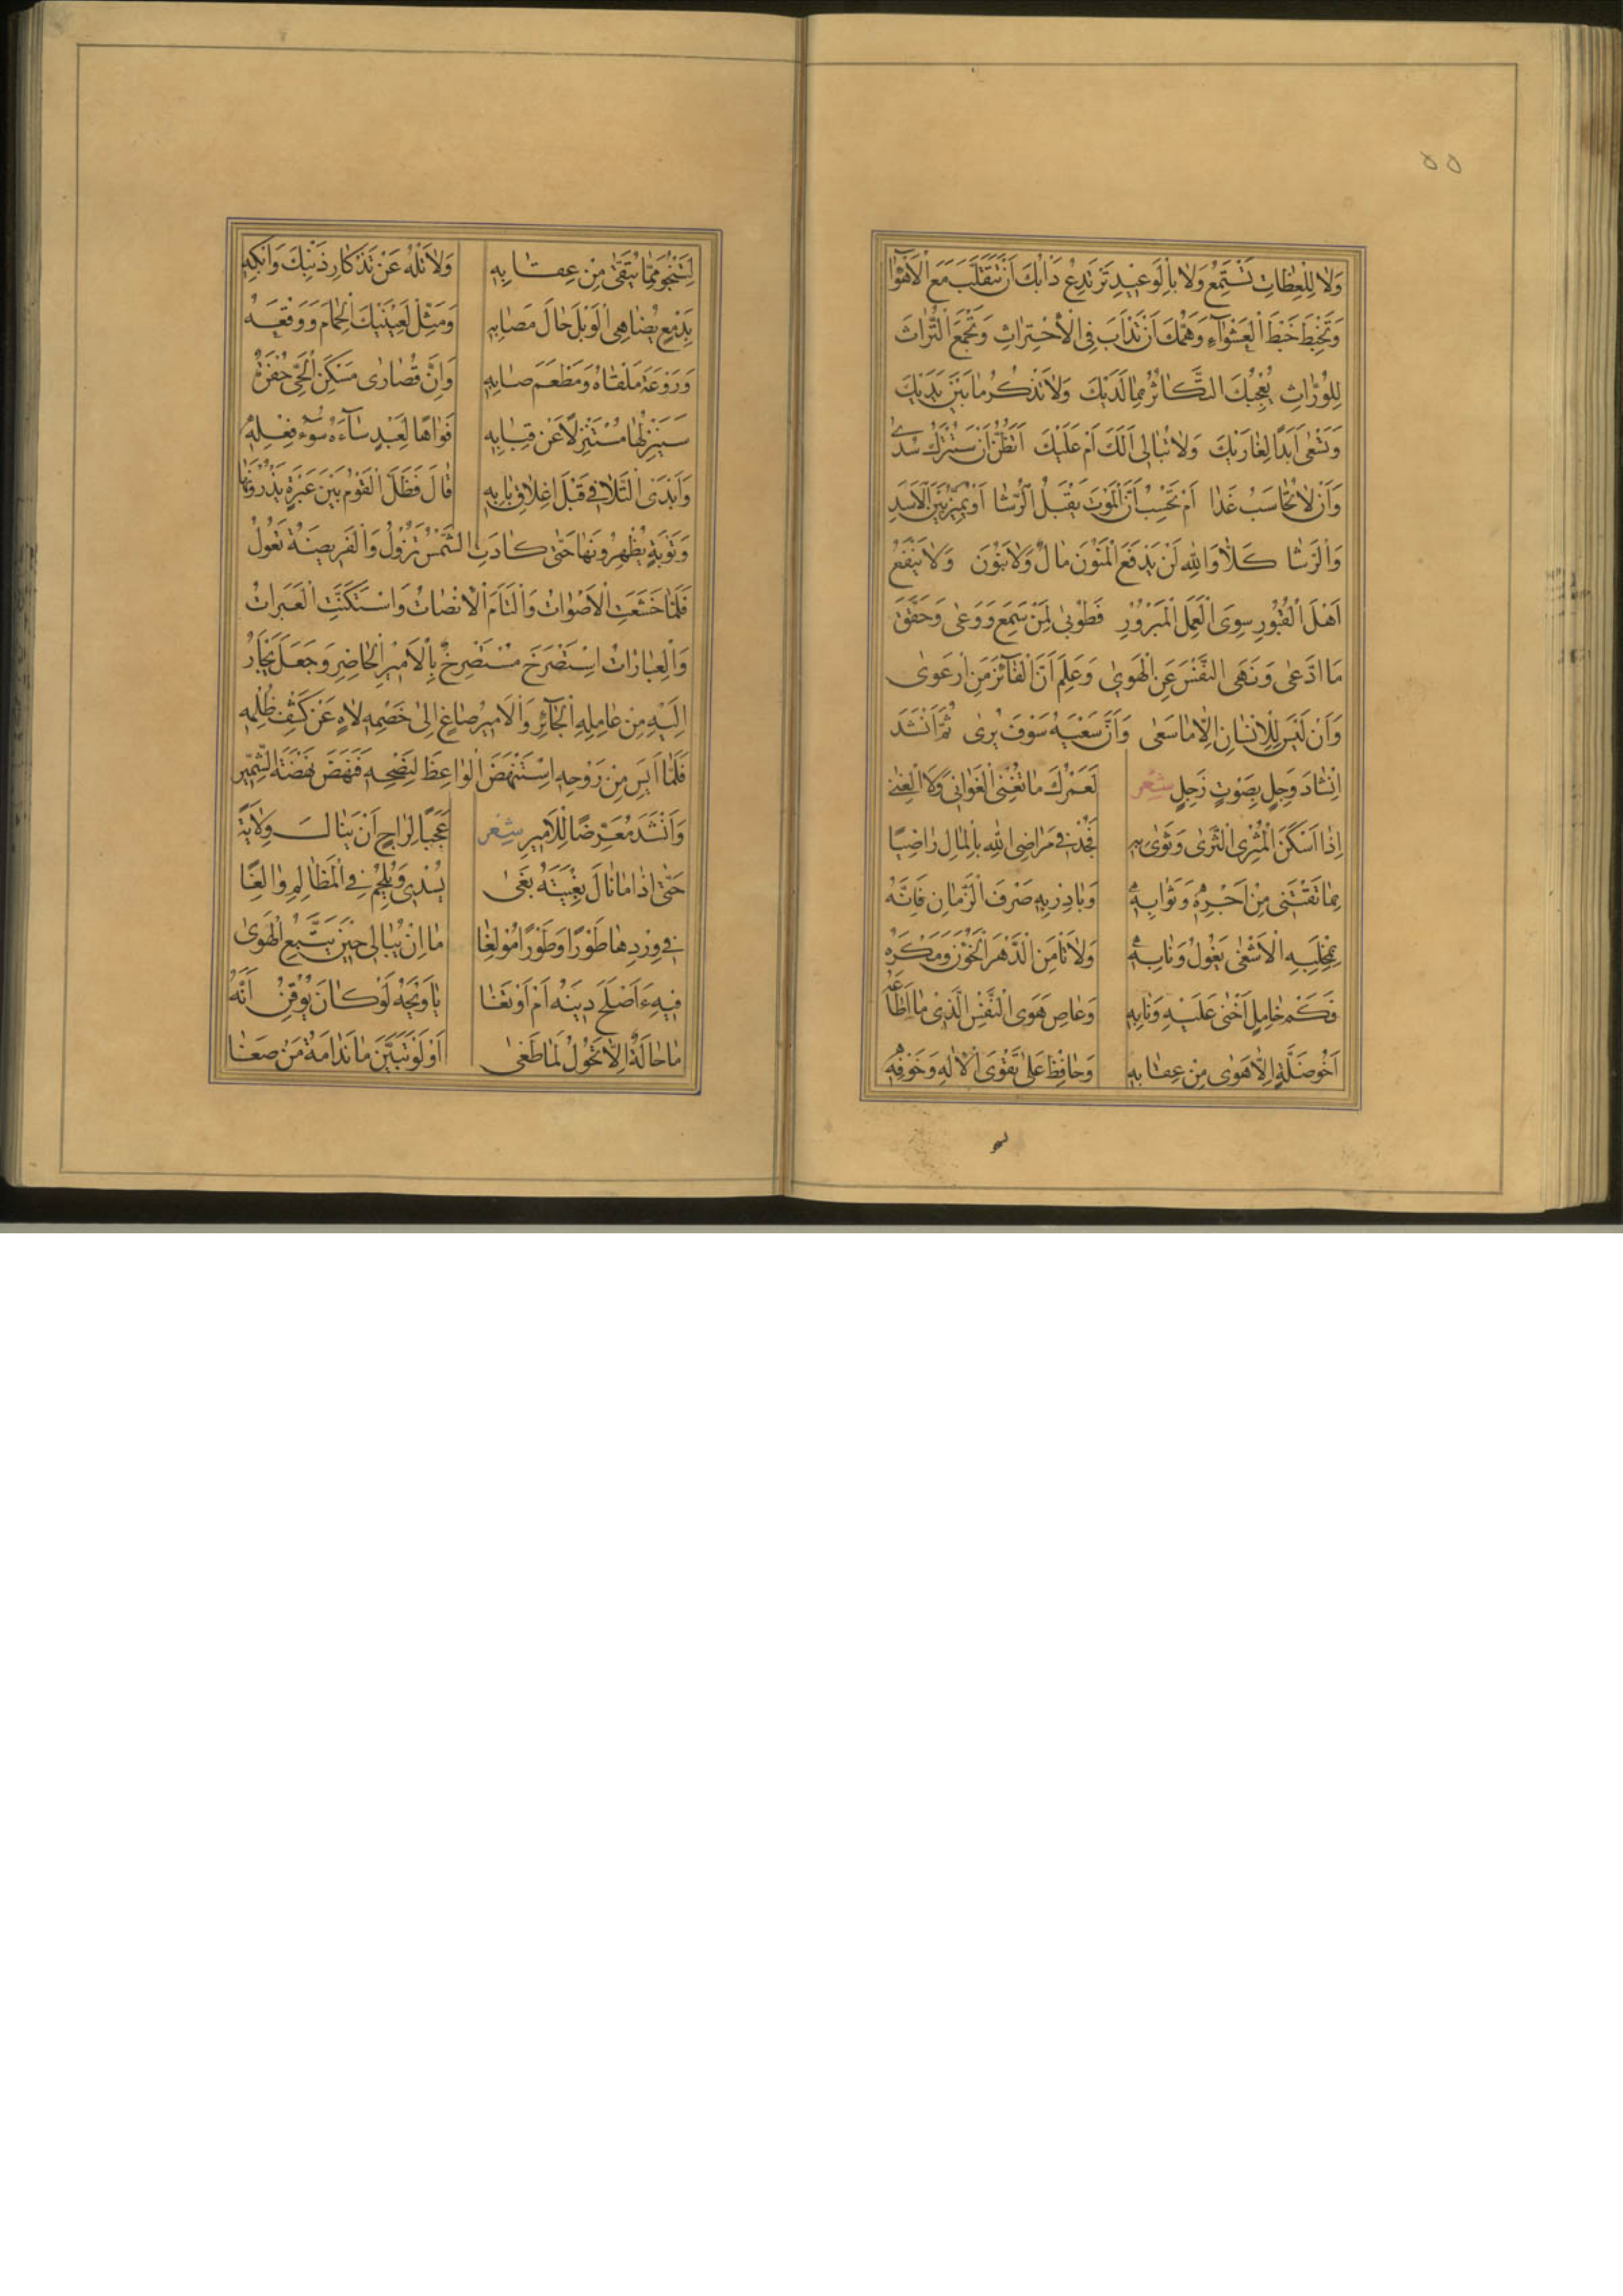 ٥٥
وَلَا لِلْعِظَاتِ تَسْتَمِعُ وَلَا بِالْوَعِيدِ تَرْتَدِعُ دَأْبُكَ أَنْ تَتَقَلَّبَ مَعَ الْأَهْوَاءِ
وَتَخْبِطَ خَبْطَ الْعَشْوَاءِ وَهَمُّكَ أَنْ تَدْأَبَ فِي الْاِحْتِرَاثِ وَتَجْمَعَ التُّرَاثَ
لِلْوُرَّاثِ يُعْجِبُكَ التَّكَاثُرُ بِمَا لَدَيْكَ وَلَا تَذْكُرُ مَا بَيْنَ يَدَيْكَ
وَتَسْعَى أَبَدًا لِغَارَيْكَ وَلَا تُبَالِي أَلَكَ أَمْ عَلَيْكَ أَتَظُنُّ أَنْ سَتُتْرَكُ سُدًى
وَأَنْ لَا تُحَاسَبُ غَدًا أَمْ تَحْسِبُ أَنَّ الْمَوْتَ يَقْبَلُ الرُّشَا أَوْ يُمَيِّزُ بَيْنَ الْأَسَدِ
وَالرَّشَا كَلَّا وَاللهِ لَنْ يَدْفَعَ الْمَنُونَ مَالٌ وَلَا بَنُونَ وَلَا يَنْفَعُ
أَهْلَ الْقُبُورِ سِوَى الْعَمَلِ الْمَبْرُورِ فَطُوبَى لِمَنْ سَمِعَ وَوَعَى وَحَقَّقَ
مَا ادَّعَى وَنَهَى النَّفْسَ عَنِ الْهَوَى وَعَلِمَ أَنَّ الْفَائِزَ مَنِ ارْعَوَى
وَأَنْ لَيْسَ لِلْإِنْسَانِ إِلَّا مَا سَعَى وَأَنَّ سَعْيَهُ سَوْفَ يُرَى ثُمَّ أَنْشَدَ
إِنْشَادَ وَجِلٍ بِصَوْتٍ زَجِلٍ شعر لَعَمْرُكَ مَا تُغْنِي الْغَوَانِي وَلَا الْغِنَى
إِذَا أَسْكَنَ الْمُثْرِي الثَّرَى وَثَوَى بِهِ فَجُدْ فِي مَرَاضِي اللهِ بِالْمَالِ رَاضِيًا
بِمَا تَقْتَنِي مِنْ أَجْرِهِ وَثَوَابِهِ وَبَادِرْ بِهِ صَرْفَ الزَّمَانِ فَإِنَّهُ
بِمِخْلَبِهِ الْأَشْغَى يَغُولُ وَنَابِهِ وَلَا تَأْمَنِ الدَّهْرَ الْخَؤُونَ وَمَكْرَهُ
فَكَمْ خَامِلٍ أَخْنَى عَلَيْهِ وَنَابِهِ وَعَاصِ هَوَى النَّفْسِ الَّذِي مَا أَطَاعَهُ
أَخُو ضَلَّةٍ إِلَّا هَوَى مِنْ عِقَابِهِ وَحَافِظْ عَلَى تَقْوَى الْإِلَهِ وَخَوْفِهِ
لِتَنْجُوَ مِمَّا يُتَّقَى مِنْ عِقَابِهِ وَلَا تَلْهُ عَنْ تَذْكَارِ ذَنْبِكَ وَابْكِهِ
بِدَمْعٍ يُضَاهِي الْوَبْلَ حَالَ مَصَابِهِ وَمَثِّلْ لِعَيْنَيْكَ الْحِمَامَ وَوَقْعَهُ
وَرَوْعَةَ مَلْقَاهُ وَمَطْعَمَ صَابِهِ وَإِنَّ قُصَارَى مَسْكَنِ الْحَيِّ حُفْرَةٌ
سَيَنْزِلُهَا مُسْتَنْزَلًا عَنْ قِبَابِهِ فَوَاهًا لِعَبْدٍ سَاءَهُ سُوءُ فِعْلِهِ
وَأَبْدَى التَّلَافِيَ قَبْلَ إِغْلَاقِ بَابِهِ قَالَ فَظَلَّ الْقَوْمُ بَيْنَ عَبْرَةٍ يُذْرُونَهَا
وَتَوْبَةٍ يُظْهِرُونَهَا حَتَّى كَادَتِ الشَّمْسُ تَزُولُ وَالْفَرِيضَةُ تَعُولُ
فَلَمَّا خَشَعَتِ الْأَصْوَاتُ وَالْتَأَمَ الْإِنْصَاتُ وَاسْتَكَنَّتِ الْعَبَرَاتُ
وَالْعِبَارَاتُ اسْتَصْرَخَ مُسْتَصْرِخٌ بِالْأَمِيرِ الْحَاضِرِ وَجَعَلَ يَجْأَرُ
إِلَيْهِ مِنْ عَامِلِهِ الْجَائِرِ وَالْأَمِيرُ صَاغٍ إِلَى خَصْمِهِ لَاهٍ عَنْ كَشْفِ ظُلْمِهِ
فَلَمَّا أَيِسَ مِنْ رَوْحِهِ اسْتَنْهَضَ الْوَاعِظَ لِنُصْحِهِ فَنَهَضَ نَهْضَةَ الشِّمِّيرِ
وَأَنْشَدَ مُعَرِّضًا لِلْأَمِيرِ شعر عَجَبًا لِرَاجٍ أَنْ يَنَالَ وِلَايَةً
حَتَّى إِذَا مَا نَالَ بُغْيَتَهُ بَغَى يُسْدِي وَيُلْحِمُ فِي الْمَظَالِمِ وَالِغًا
فِي وِرْدِهَا طَوْرًا وَطَوْرًا مُولِغًا مَا إِنْ يُبَالِي حِينَ يَتَّبِعُ الْهَوَى
فِيهِ أَأَصْلَحَ دِينَهُ أَمْ أَوْتَغَا يَا وَيْحَهُ لَوْ كَانَ يُوقِنُ أَنَّهُ
مَا حَالَةٌ إِلَّا تَحُولُ لَمَا طَغَى أَوْ لَوْ تَبَيَّنَ مَا نَدَامَةُ مَنْ صَغَا